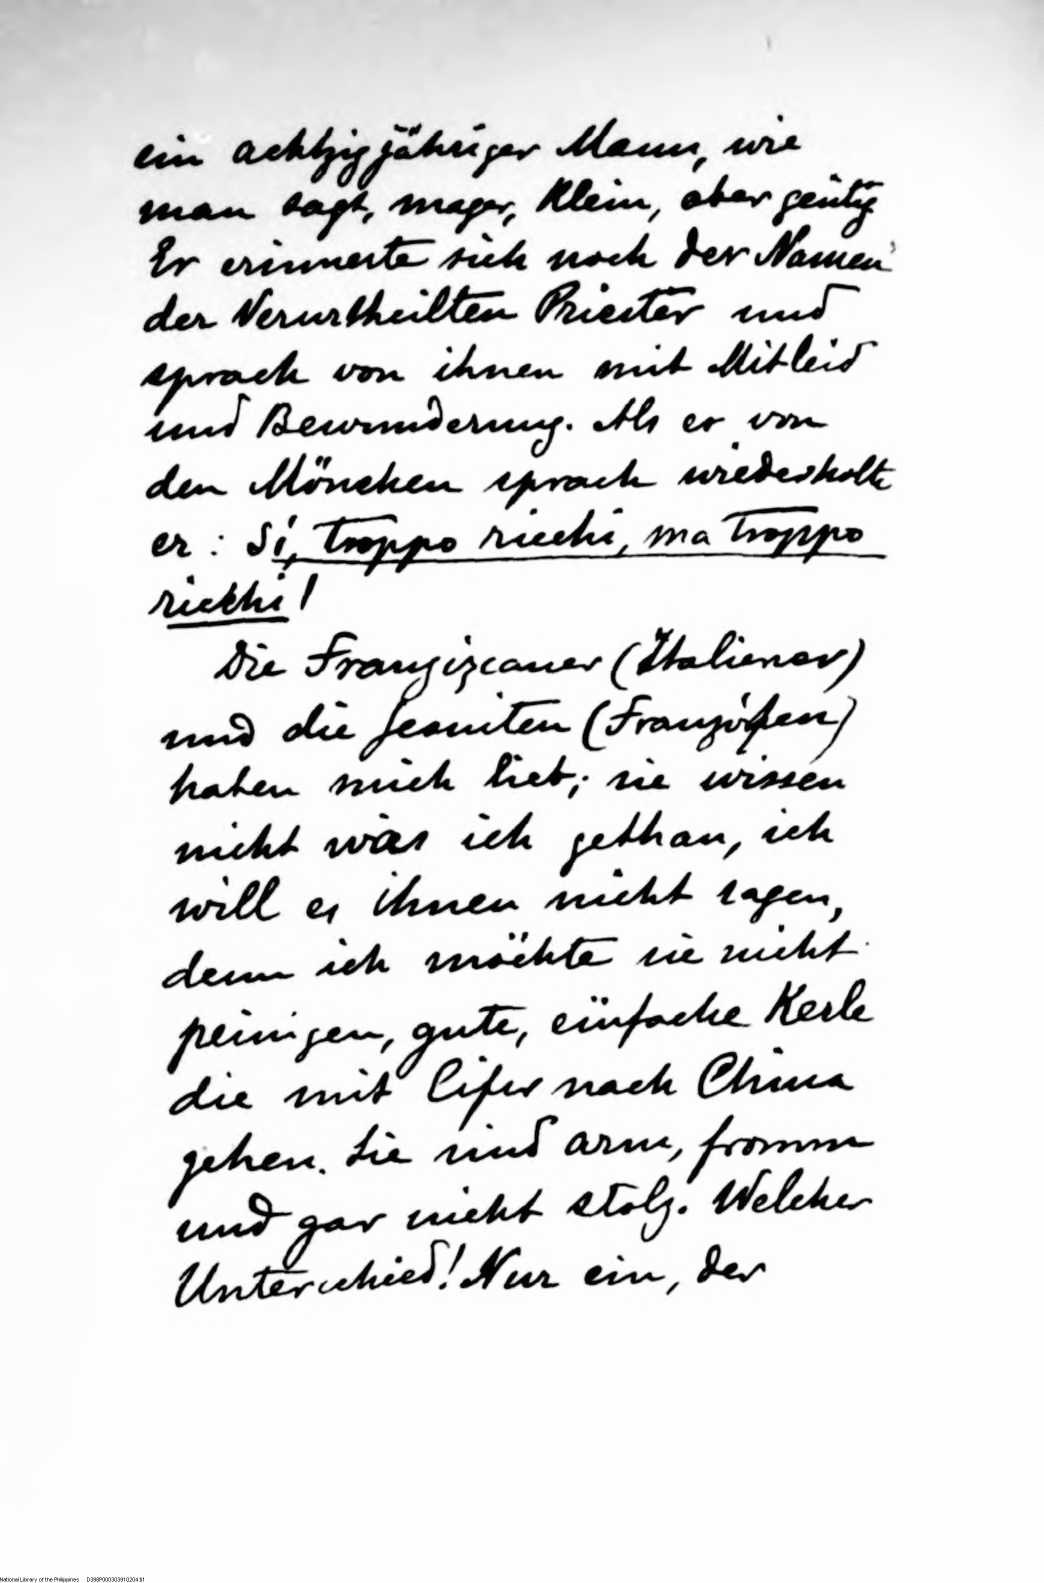 ein achtzigjähriger Mann, wie
man sagt, mager, klein, aber geütig
Er erinnerte sich noch der Namen
der Verurtheilten Priester und
sprach von ihnen mit Mitleid
und Bewunderung. Als er von
den Mönchen sprach wiederholte
er: Sí, troppo ricchi, ma troppo
ricchi!
Die Franziscaner (Italiener)
und die Jesuiten (Franzósen)
haben mich lieb; sie wissen
nicht was ich gethan, ich
will es ihnen nicht sagen,
denn ich möchte sie nicht
peinigen, gute, einfache Kerle
die mit Eifer nach China
gehen. Sie sind arm, fromm
und gar nicht stolz. Welcher
Unterschied! Nur ein, der
National Library of the Philippines D398P000303910204.91